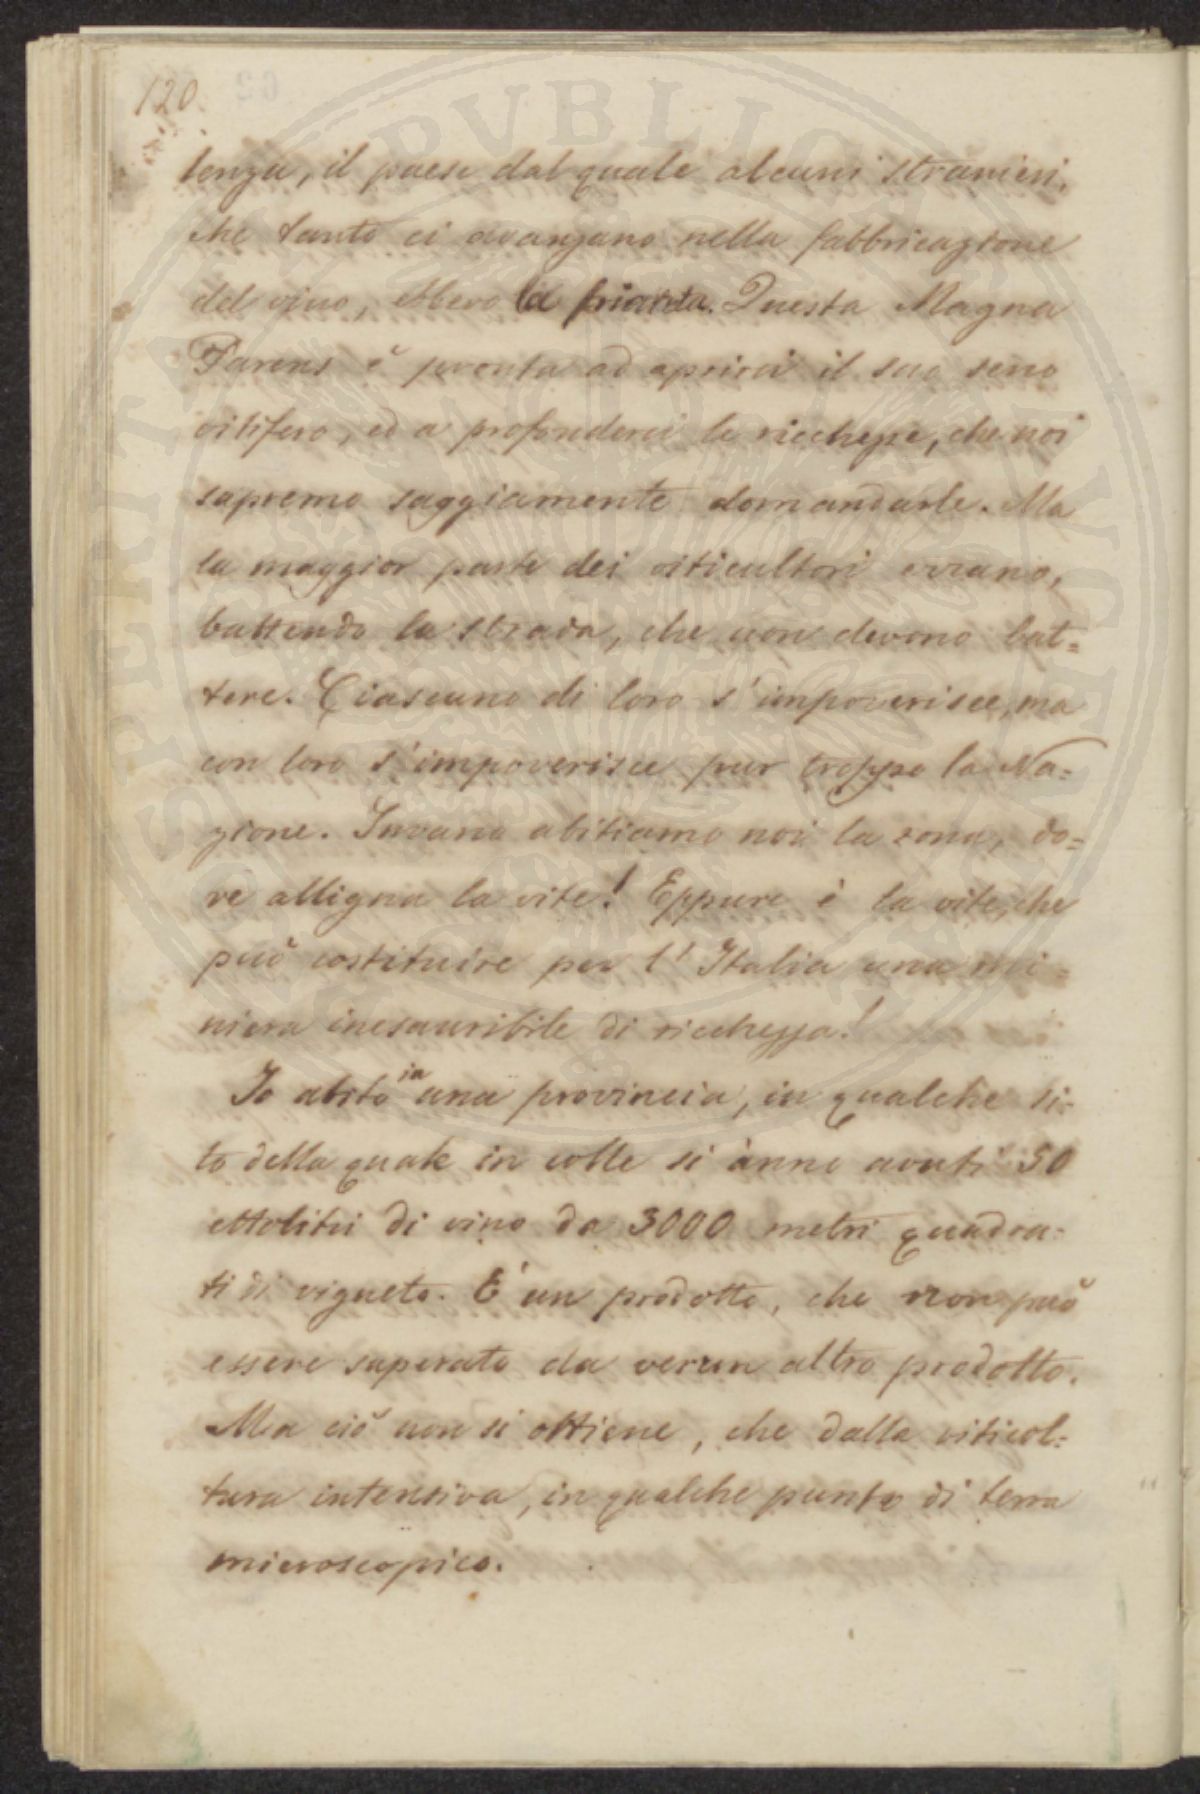 120.
lenza, il paese dal quale alcuni stranieri,
che tanto ci avanzano nella fabbricazione
del vino, ebbero la pianta. Questa Magna
Parens è pronta ad aprirci il suo seno
vitifero, ed a profonderci le ricchezze, che noi
sapremo saggiamente domandarle. Ma
la maggior parte dei viticultori errano,
battendo la strada, che non devono bat=
tere. Ciascuno di loro s'impoverisce, ma
con loro s'impoverisce pur troppo la Na=
zione. Invano abitiamo noi la zona, do=
ve alligna la vite! Eppure è la vite, che
può costituire per l'Italia una mi=
niera inesauribile di ricchezza!
Io abito in una provincia, in qualche si=
to della quale in colle si ànno avuti 50
ettolitri di vino da 3000 metri quadra=
ti di vigneto. È un prodotto, che non può
essere superato da verun altro prodotto.
Ma ciò non si ottiene, che dalla viticol=
tura intensiva, in qualche punto di terra
microscopico.